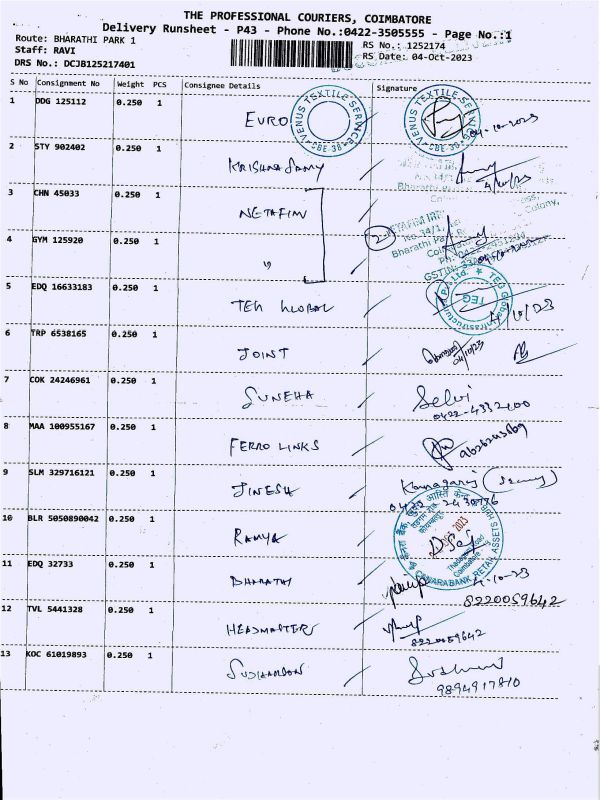 THE PROFESSIONAL COURIERS, COIMBATORE
Delivery Runsheet - P43 - Phone No.:0422-3505555 - Page No.:1
Route: BHARATHI PARK 1
RS No.: 1252174
Staff: RAVI
RS Date: 04-Oct-2023
DRS No.: DCJB125217401
S No Consignment No Weight PCS Consignee Details Signature
1 DDG 125112 0.250 1 EURO
VENUS TEXTILE SERVICE CBE 38
VENUS TEXTILE SERVICE CBE 38
04-10-2023
2 STY 902402 0.250 1 KRISHNA SAMY
4/10/23
3 CHN 45033 0.250 1 NETAFIM
Colony,
2
No.34/1,
Bharathi Park
4 GYM 125920 0.250 1 "
GSTIN:
5 EDQ 16633183 0.250 1 TEG GLOBAL
TEG
4/10/23
6 TRP 6538165 0.250 1 JOINT
04/10/23
7 COK 24246961 0.250 1 SUNEHA Selvi
0422-4332400
8 MAA 100955167 0.250 1 FERRO LINKS
9 SLM 329716121 0.250 1 JINESH Kanagaraj
0422 2430776
10 BLR 5050890042 0.250 1 RAMYA
2023
Thadagam Road
Coimbatore
CANARABANK RETAIL ASSETS
11 EDQ 32733 0.250 1 BHARATHI
4-10-23
8220059642
12 TVL 5441328 0.250 1 HEADMASTER
8220059642
13 KOC 61019893 0.250 1 SUDHARSON
9894917810